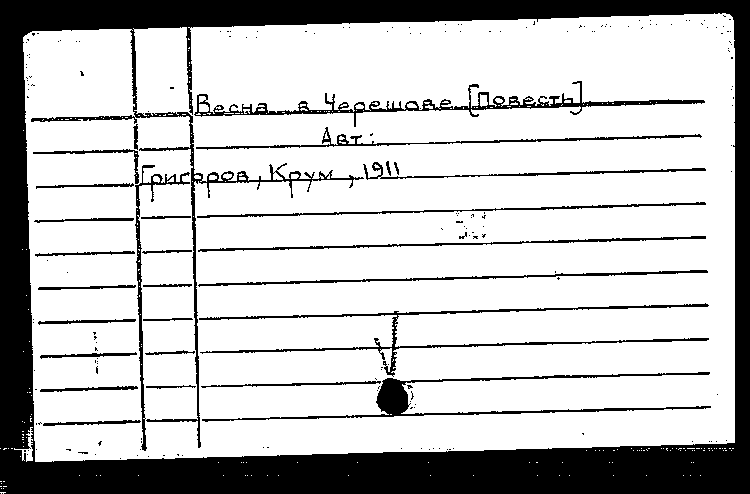 Весна в Черешове [Повесть]
Авт:
Григоров, Крум, 1911